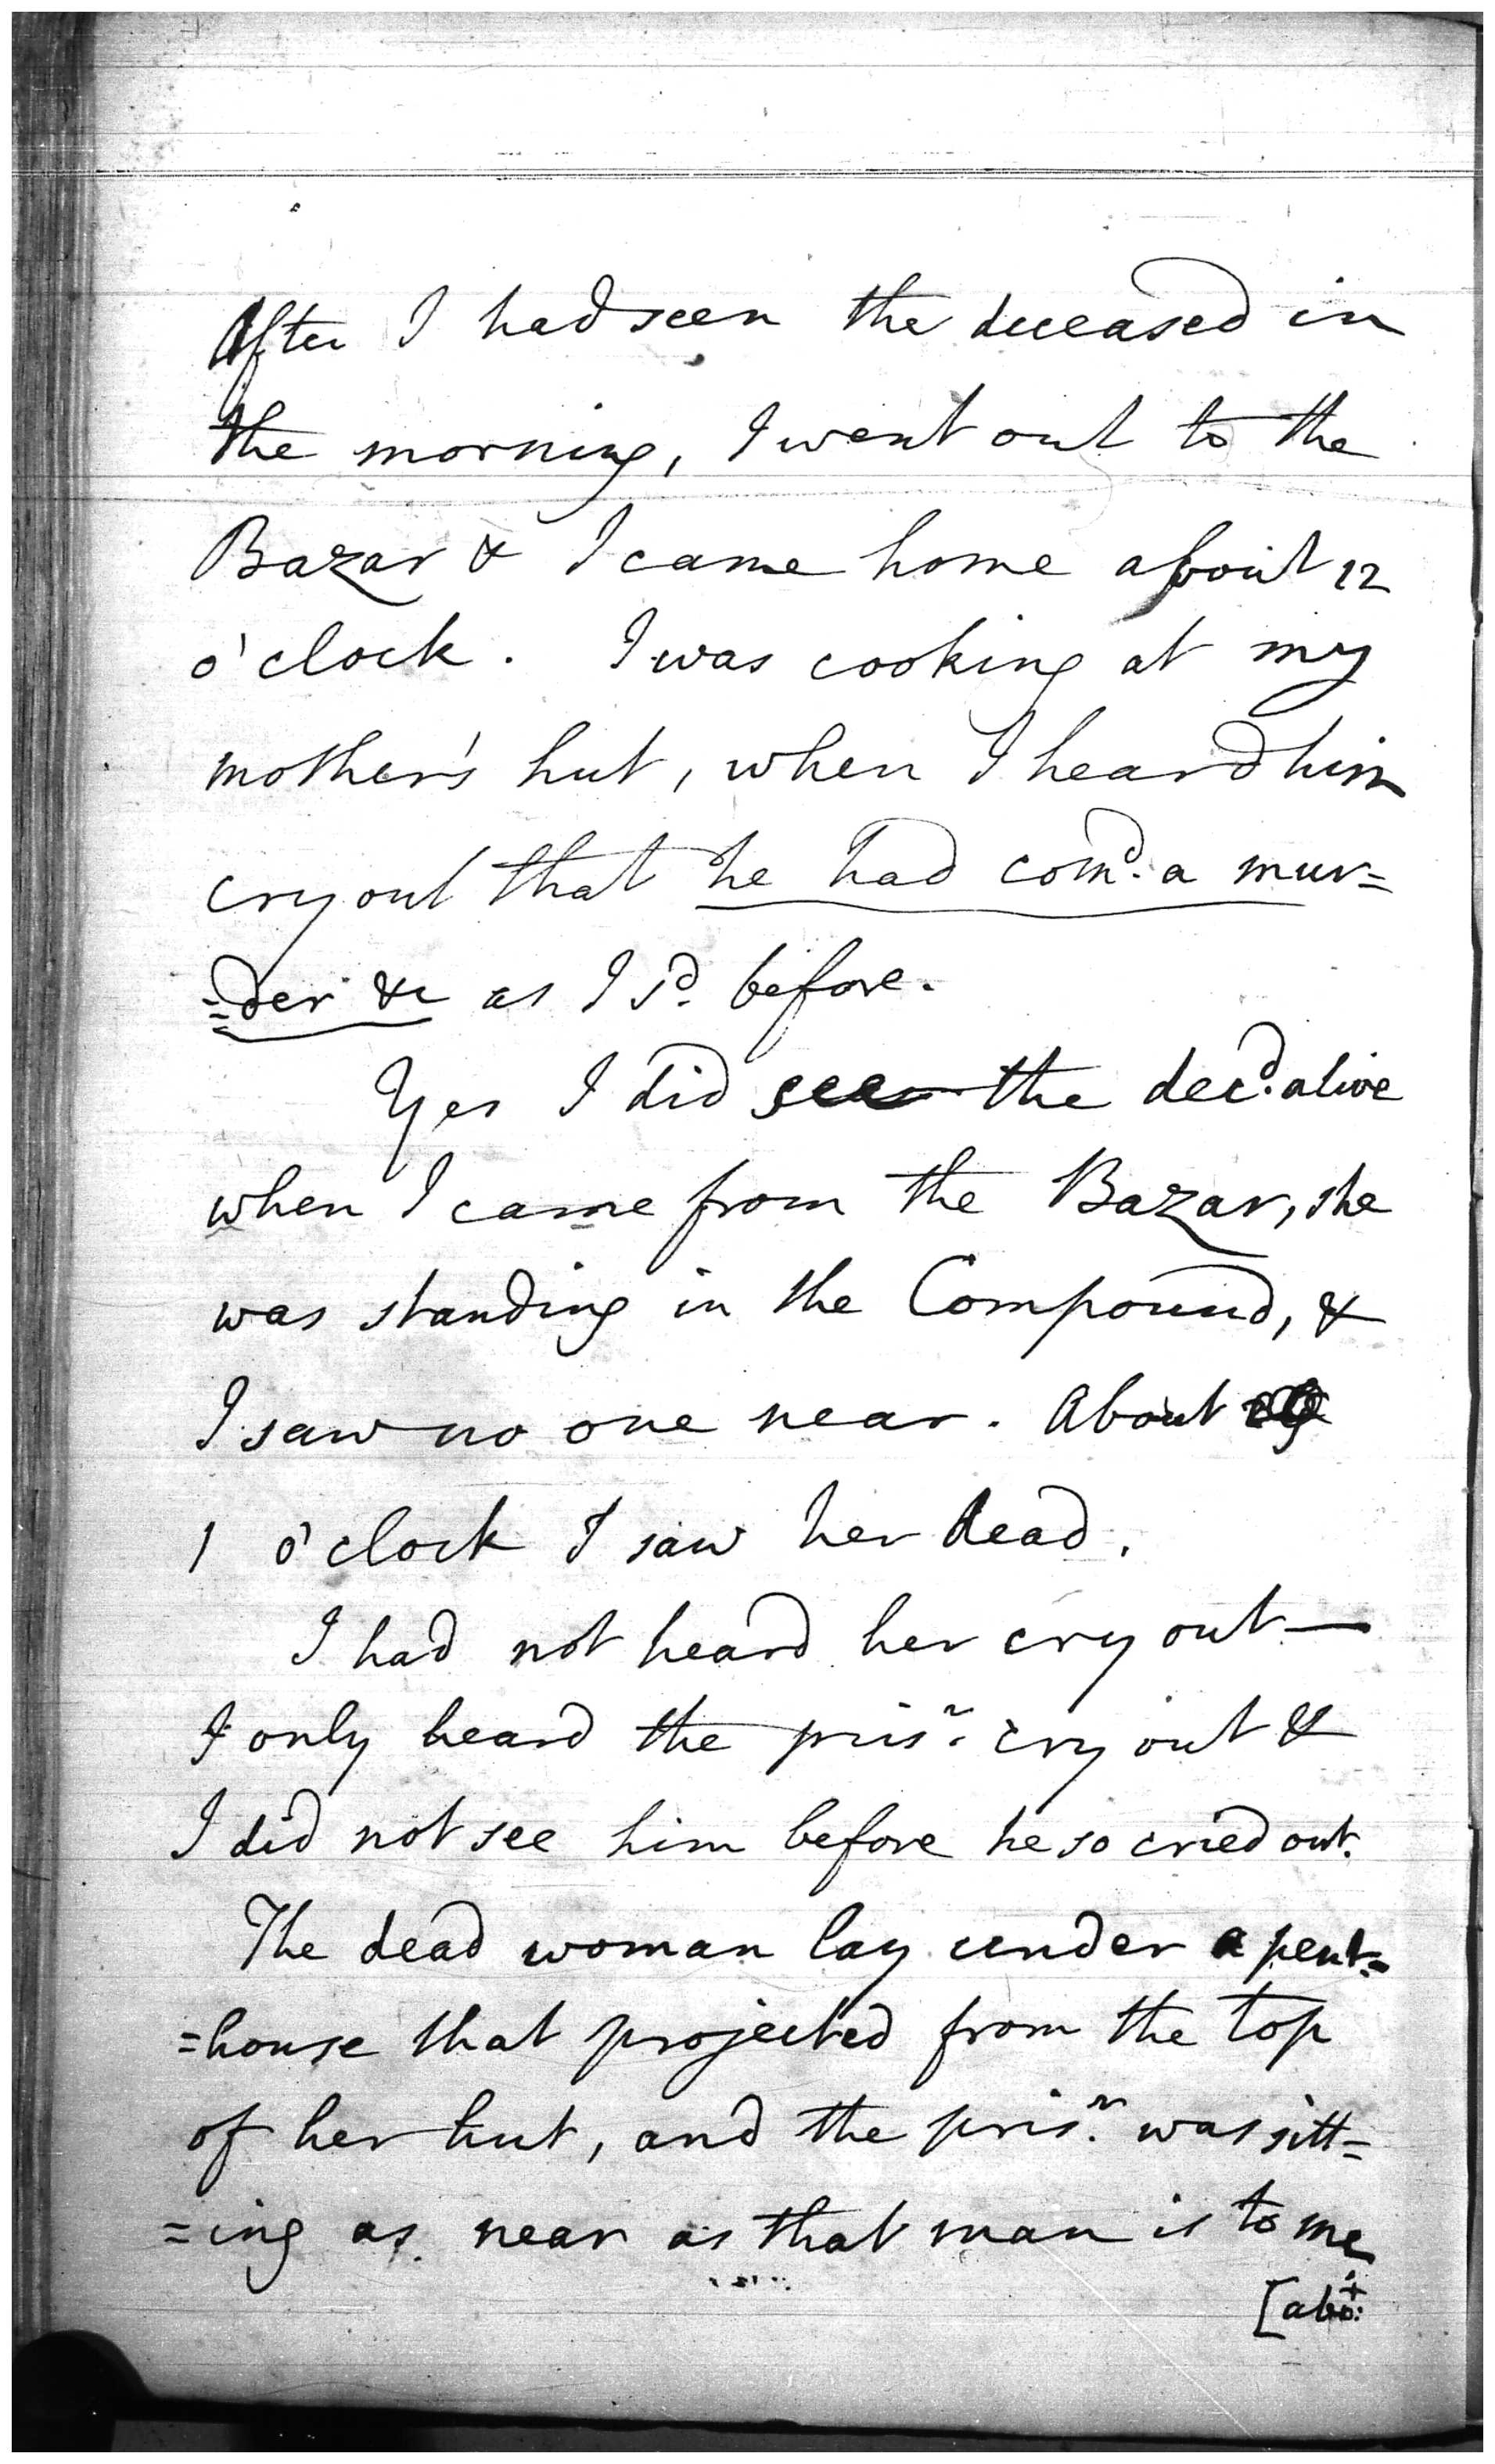 After I had seen the deceased in
the morning, I went out to the
Bazar & I came home about 12
o'clock. I was cooking at my
mother's hut, when I heard him
cry out that he had com.d a mur=
=der &c as I s.d before.
Yes I did see the dec.d alive
when I came from the Bazar, she
was standing in the Compound, &
I saw no one near. About
1 o'clock I saw her dead.
I had not heard her cry out —
I only heard the pris.r cry out &
I did not see him before he so cried out.
The dead woman lay under a pent=
=house that projected from the top
of her hut, and the pris.r was sitt=
=ing as near as that man is to me
[abo.t